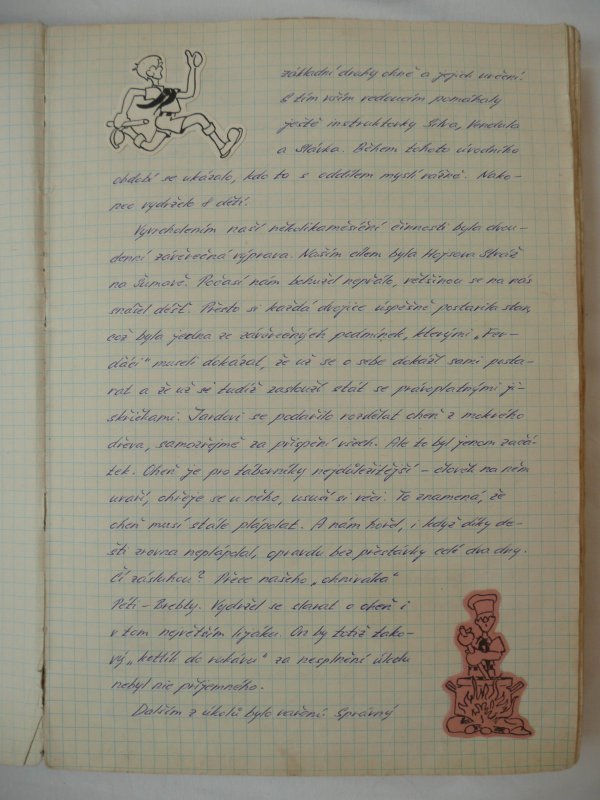 základní druhy ohně a jejich určení.
S tím vším vedoucím pomáhaly
ještě instruktorky Silva, Vendula
a Slávka. Během tohoto úvodního
období se ukázalo, kdo to s oddílem myslí vážně. Nako-
nec vydrželo dětí.
Vyvrcholením naší několikaměsíční činnosti byla dvou-
denní závěrečná výprava. Naším cílem byla Hojsova Stráž
na Šumavě. Počasí nám bohužel nepřálo, většinou se na nás
snášel déšť. Přesto si každá dvojice úspěšně postavila stan,
což byla jedna ze závěrečných podmínek, kterými „Fer-
ďáci“ museli dokázat, že už se o sebe dokáží sami posta-
rat a že už si tudíž zaslouží stát se právoplatnými ji-
skřičkami. Jardovi se podařilo rozdělat oheň z mokrého
dřeva, samozřejmě za přispění všech. Ale to byl jenom začá-
tek. Oheň je pro táborníky nejdůležitější – člověk na něm
uvaří, ohřeje se u něho, usuší si věci. To znamená, že
oheň musí stále plápolat. A nám hořel, i když díky de-
šti zrovna neplápolal, opravdu bez přestávky celé dva dny.
Čí zásluhou? Přece našeho „ohniváka“
Péti – Brebty. Vydržel se starat o oheň i
v tom největším lijáku. On by totiž tako-
vý „kotlík do rukávu“ za nesplnění úkolu
nebyl nic příjemného.
Dalším z úkolů bylo vaření. Správný